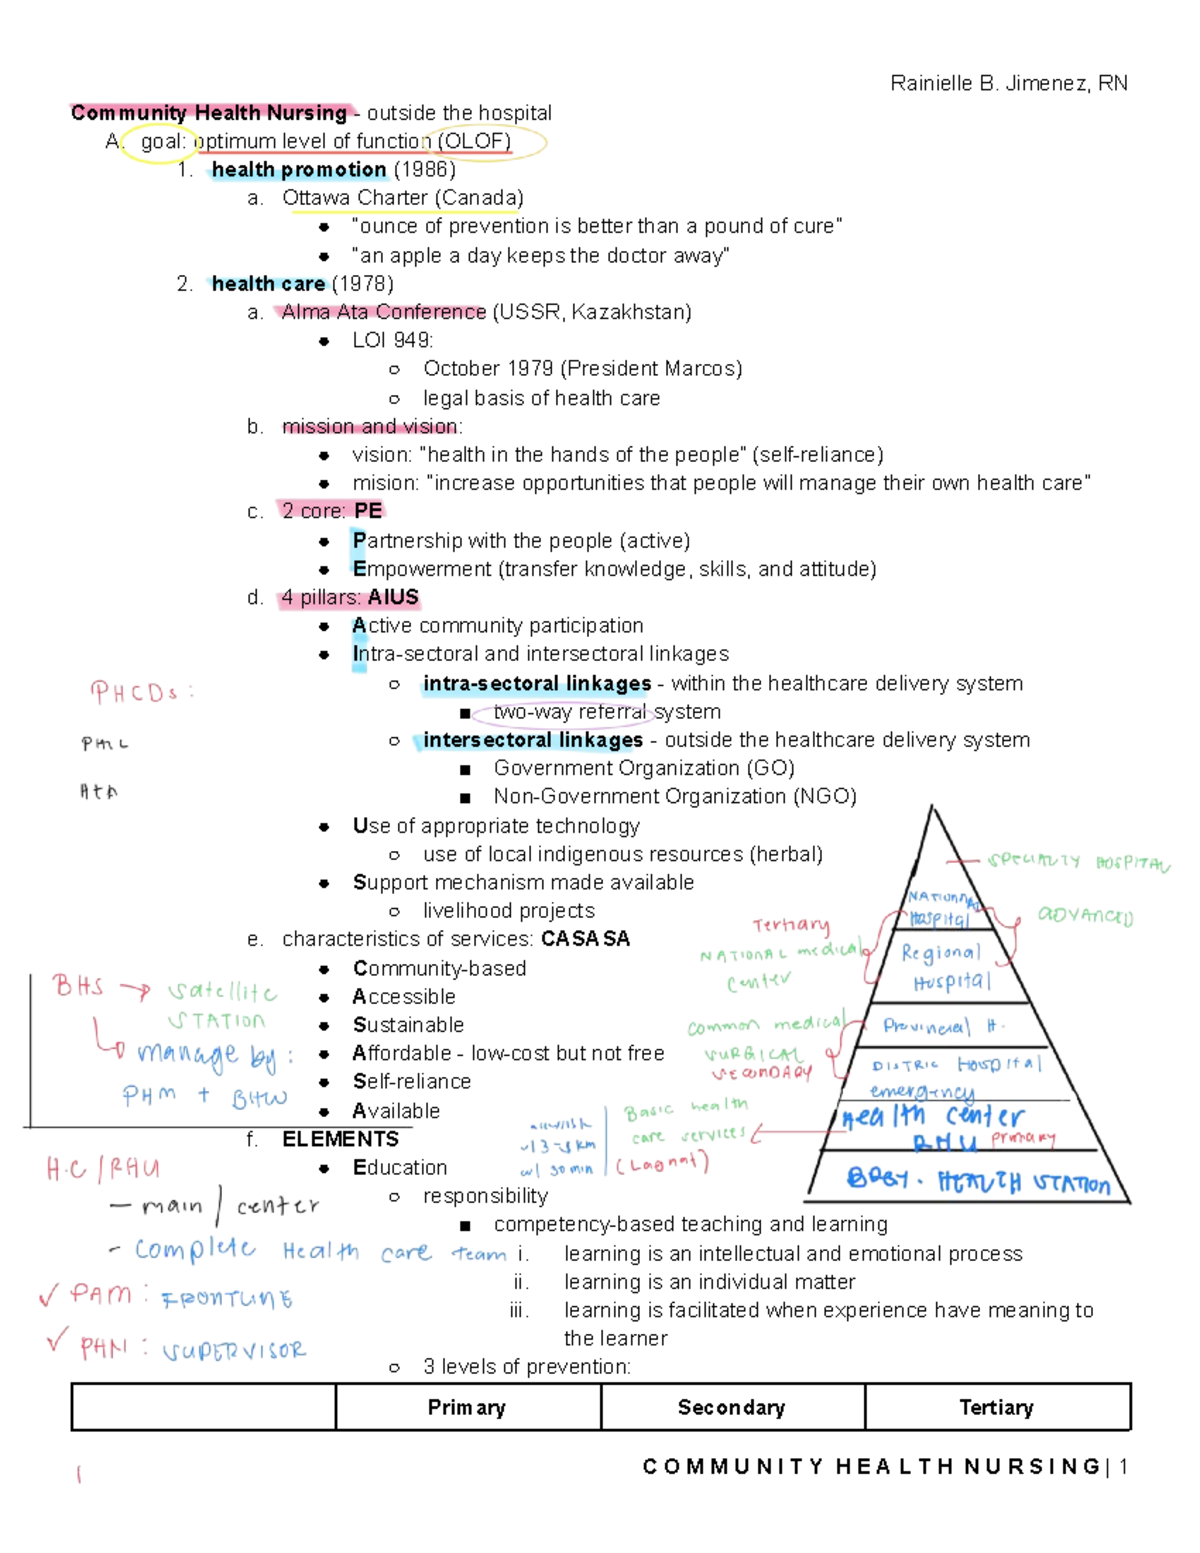 Rainielle B. Jimenez, RN
Community Health Nursing - outside the hospital
A. goal: optimum level of function (OLOF)
1. health promotion (1986)
a. Ottawa Charter (Canada)
● "ounce of prevention is better than a pound of cure"
● "an apple a day keeps the doctor away"
2. health care (1978)
a. Alma Ata Conference (USSR, Kazakhstan)
● LOI 949:
○ October 1979 (President Marcos)
○ legal basis of health care
b. mission and vision:
● vision: "health in the hands of the people" (self-reliance)
● mision: "increase opportunities that people will manage their own health care"
c. 2 core: PE
● Partnership with the people (active)
● Empowerment (transfer knowledge, skills, and attitude)
d. 4 pillars: AIUS
● Active community participation
● Intra-sectoral and intersectoral linkages
○ intra-sectoral linkages - within the healthcare delivery system
PHCDs:
■ two-way referral system
○ intersectoral linkages - outside the healthcare delivery system
■ Government Organization (GO)
■ Non-Government Organization (NGO)
● Use of appropriate technology
○ use of local indigenous resources (herbal)
● Support mechanism made available
○ livelihood projects
e. characteristics of services: CASASA
● Community-based
● Accessible
● Sustainable
● Affordable - low-cost but not free
● Self-reliance
● Available
BHS → satellite
STATION
manage by:
PHM + BHW
SPECIALTY HOSPITAL
NATIONAL
Hospital
ADVANCED
Tertiary
NATIONAL medical
center
Regional
Hospital
common medical
SURGICAL
SECONDARY
Provincial H.
DISTRIC HOSPITAL
emergency
Basic health
care services
(Lagnat)
w/ 30 min
Health center
RHU primary
BRGY. HEALTH STATION
f. ELEMENTS
● Education
○ responsibility
■ competency-based teaching and learning
i. learning is an intellectual and emotional process
ii. learning is an individual matter
iii. learning is facilitated when experience have meaning to
the learner
○ 3 levels of prevention:
H.C/RHU
- main / center
- complete Health care team
✓ PAM: FRONTLINE
✓ PHN: SUPERVISOR
Primary Secondary Tertiary
COMMUNITY HEALTH NURSING| 1